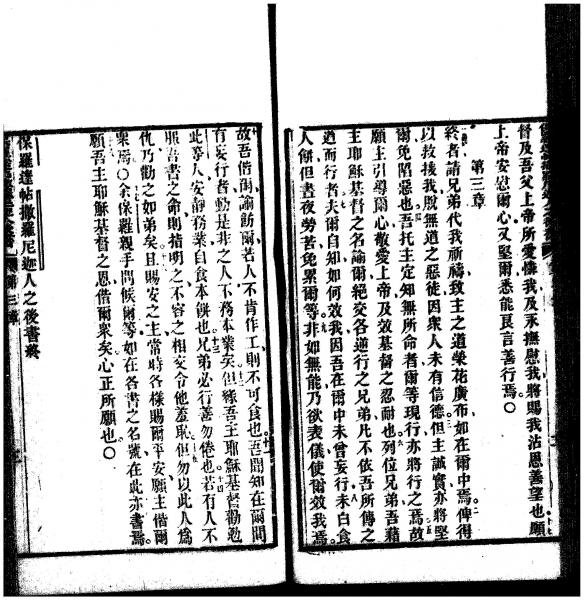 督及吾父上帝所愛憐我及永撫慰我將賜我沾恩善望也願
上帝安慰爾心又堅爾悉能良言善行焉○
第三章
終者請兄弟代我祈禱致主之道榮花廣布如在爾中焉俾得
以救援我脫無道之惡徒因衆人未有信德但主誠實亦將堅
爾免陷惡也吾托主定知無所命者爾等現行亦將行之焉故
願主引導爾心敬愛上帝及效基督之忍耐也列位兄弟吾藉
主耶穌基督之名諭爾絕交各逆行之兄弟凡不依吾所傳之
道而行者夫爾自知如何效我因吾在爾中未曾妄行未白食
人餅但晝夜勞苦免累爾等非如無能乃欲表儀使爾效我焉
故吾偕爾諭飭爾若人不肯作工則不可食也吾聞知在爾間
有妄行者動是非之人不務本業矣但緣吾主耶穌基督勸勉
此等人安靜務業自食本餅也兄弟必行善勿倦也若有人不
服吾書之命則指明之不容之相交令他羞恥但勿以此人爲
仇乃勸之如弟矣且賜安之主常時各樣賜爾平安願主偕爾
衆焉○余保羅親手問候爾等如在各書之名號在此亦書焉
願吾主耶穌基督之恩偕爾衆矣心正所願也○
保羅達帖撒羅尼迦人之後書終